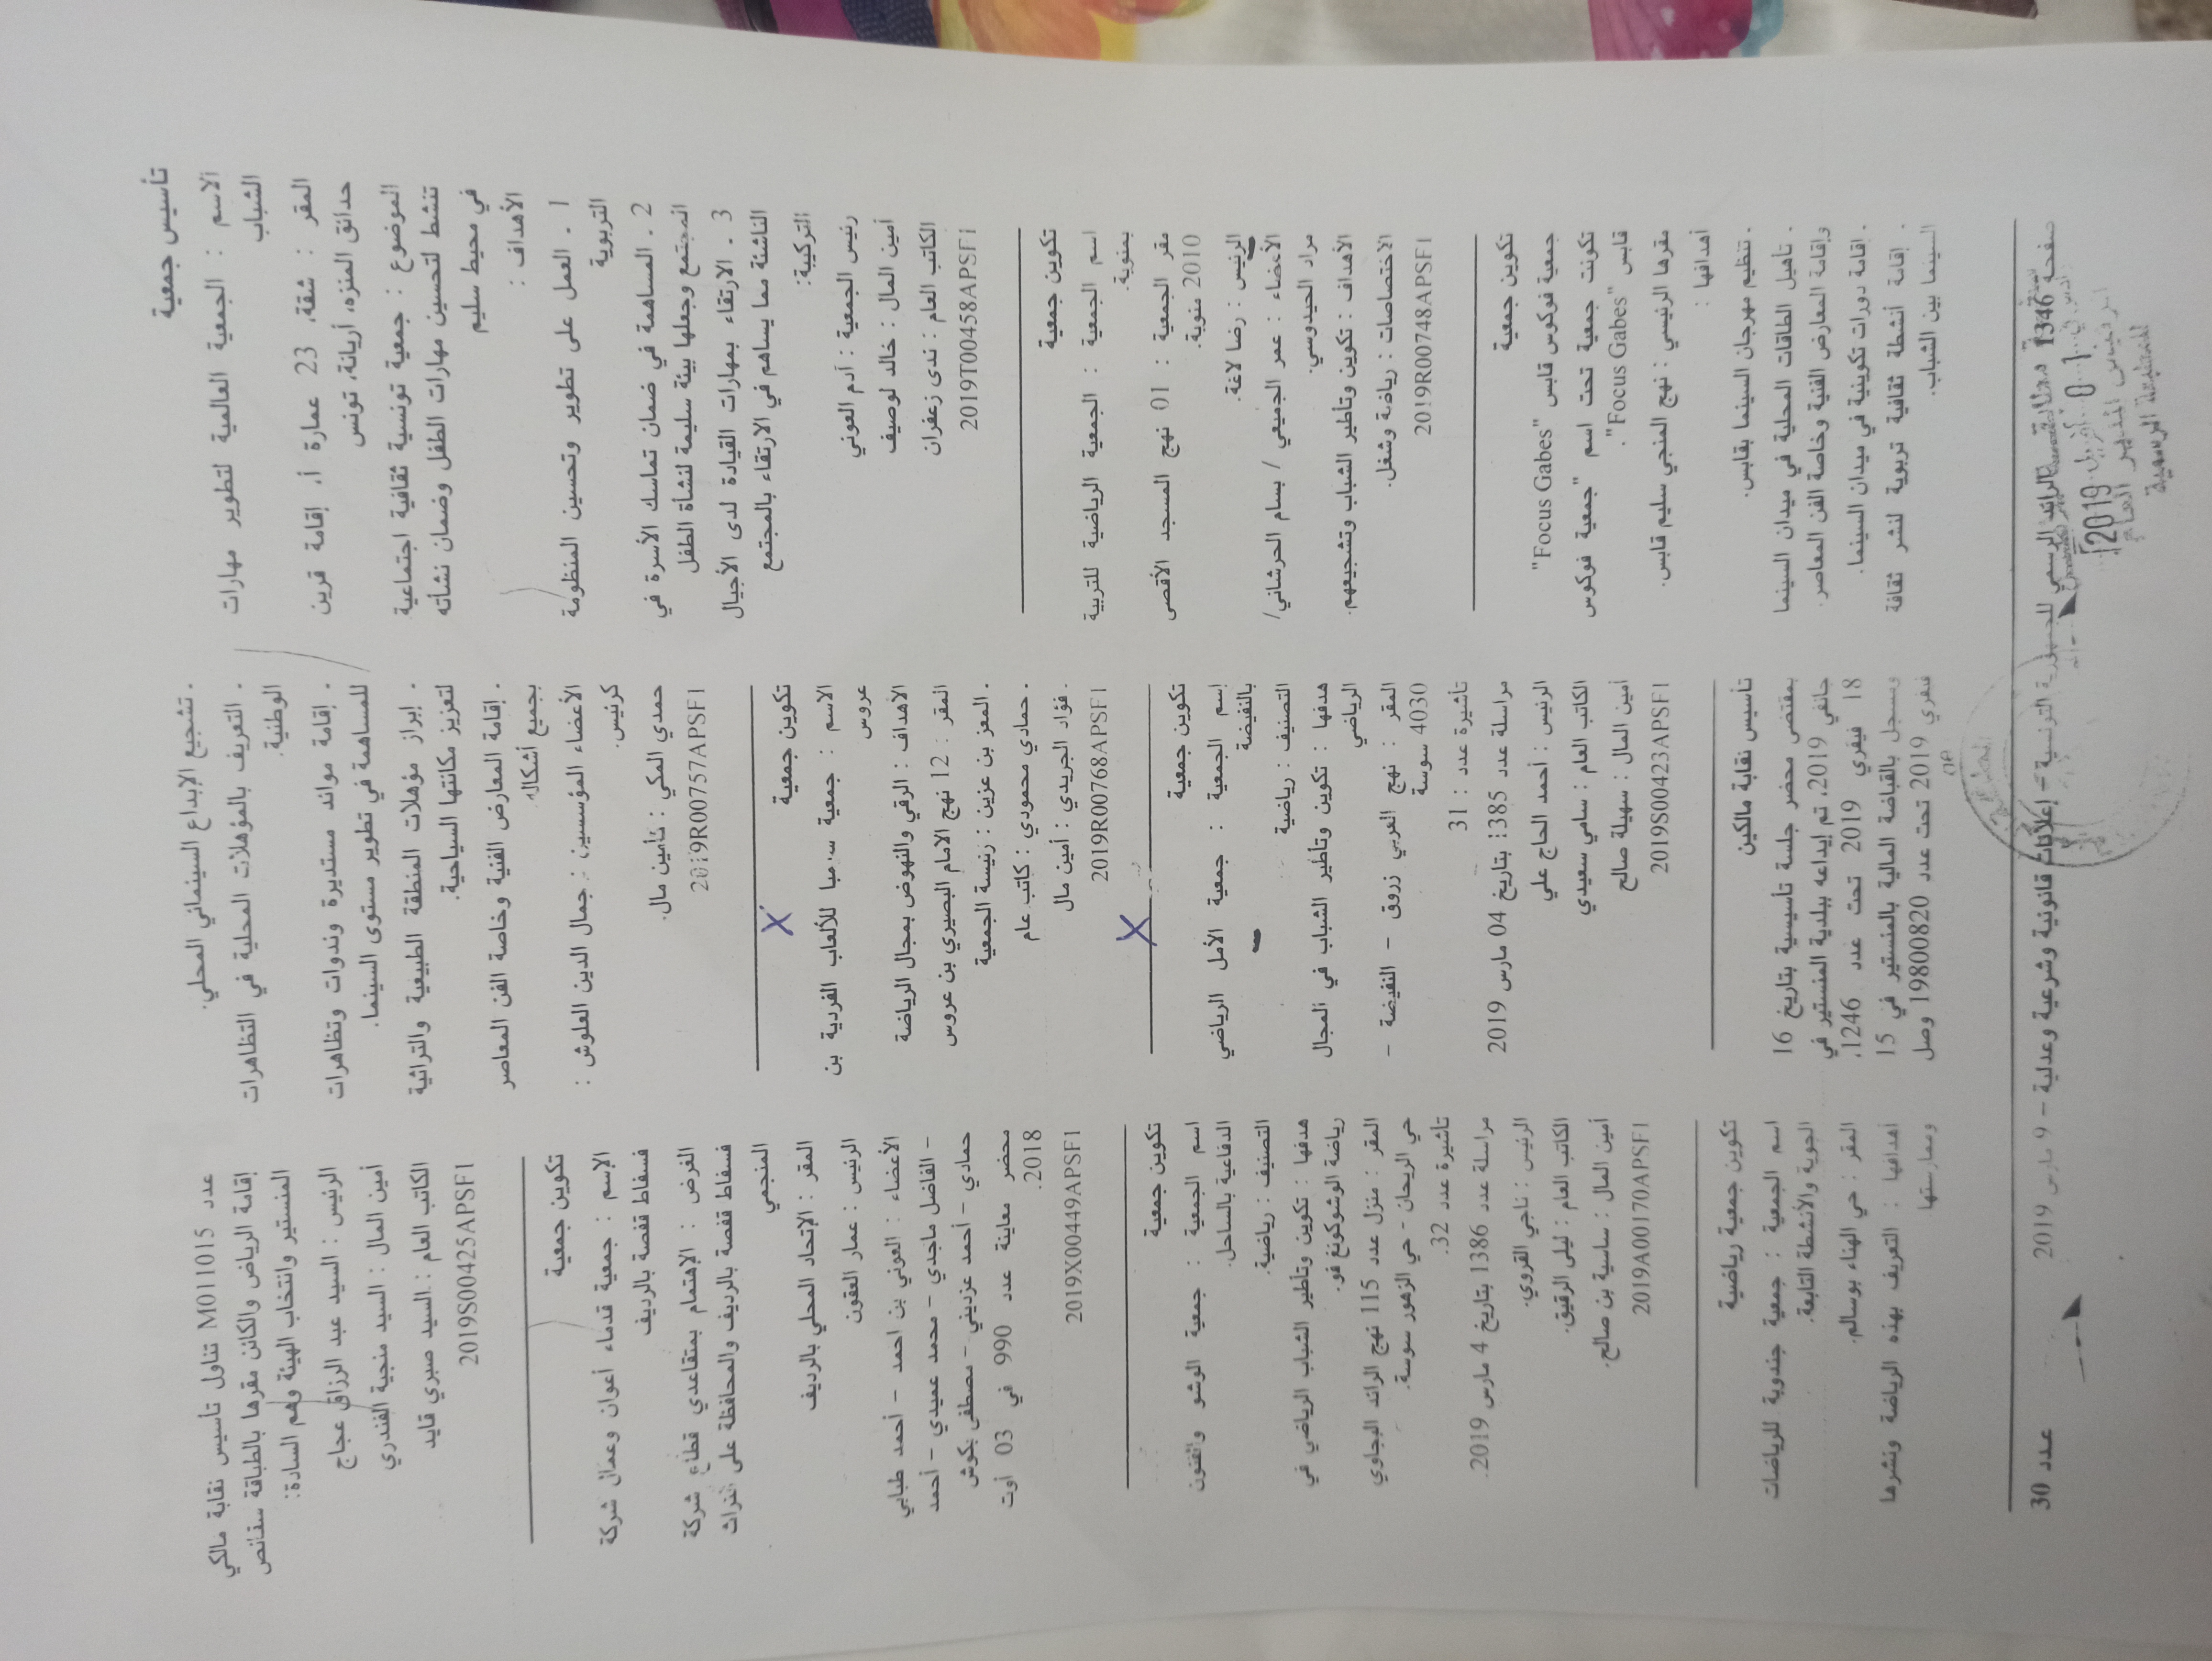 تأسيس جمعية
الاسم : الجمعية العالمية لتطوير مهارات
الشباب
المقر : شقة، 23 عمارة أ، إقامة قرين
حدائق المنزه، أريانة، تونس
الموضوع : جمعية تونسية ثقافية اجتماعية
تنشط لتحسين مهارات الطفل وضمان نشأته
في محيط سليم
الأهداف :
1 ـ العمل على تطوير وتحسين المنظومة
التربوية
2 ـ المساهمة في ضمان تماسك الأسرة في
المجتمع وجعلها بيئة سليمة لنشأة الطفل
3 ـ الارتقاء بمهارات القيادة لدى الأجيال
الناشئة مما يساهم في الارتقاء بالمجتمع
التركيبة:
رئيس الجمعية : آدم العوني
أمين المال : خالد لوصيف
الكاتب العام : ندى زعفران
2019T00458APSF1
تكوين جمعية
اسم الجمعية : الجمعية الرياضية للتربية
بمنوبة.
مقر الجمعية : 01 نهج المسجد الأقصى
2010 منوبة.
الرئيس : رضا لاغة.
الأعضاء : عمر الجميعي / بسام الحرشاني/
مراد الحيدوسي.
الأهداف : تكوين وتأطير الشباب وتشجيعهم.
الاختصاصات : رياضة وشغل.
2019R00748APSF1
تكوين جمعية
جمعية فوكوس قابس "Focus Gabes"
تكونت جمعية تحت اسم "جمعية فوكوس
قابس "Focus Gabes".
مقرها الرئيسي : نهج المنجي سليم قابس.
أهدافها :
. تنظيم مهرجان السينما بقابس.
. تأهيل الطاقات المحلية في ميدان السينما
وإقامة المعارض الفنية وخاصة الفن المعاصر.
. إقامة دورات تكوينية في ميدان السينما.
. إقامة أنشطة ثقافية تربوية لنشر ثقافة
السينما بين الشباب.
. تشجيع الإبداع السينمائي المحلي.
. التعريف بالمؤهلات المحلية في التظاهرات
الوطنية.
. إقامة موائد مستديرة وندوات وتظاهرات
للمساهمة في تطوير مستوى السينما.
. إبراز مؤهلات المنطقة الطبيعية والتراثية
لتعزيز مكانتها السياحية.
. إقامة المعارض الفنية وخاصة الفن المعاصر
بجميع أشكاله.
الأعضاء المؤسسين : جمال الدين العلوش :
كرئيس.
حمدي المكي : كأمين مال.
2019R00757APSF1
X
تكوين جمعية
الاسم : جمعية للألعاب الفردية بن
عروس
الأهداف : الرقي والنهوض بمجال الرياضة
المقر : 12 نهج الامام البصيري بن عروس
. المعز بن عزين : رئيسة الجمعية
. حمادي محمودي : كاتب عام
. فؤاد الجريدي : أمين مال
2019R00768APSF1
X
تكوين جمعية
إسم الجمعية : جمعية الأمل الرياضي
بالنفيضة
التصنيف : رياضية
هدفها : تكوين وتأطير الشباب في المجال
الرياضي
المقر : نهج العربي زروق – النفيضة –
4030 سوسة
تأشيرة عدد : 31
مراسلة عدد 1385 بتاريخ 04 مارس 2019
الرئيس : أحمد الحاج علي
الكاتب العام : سامي سعيدي
أمين المال : سهيلة صالح
2019S00423APSF1
تأسيس نقابة مالكين
بمقتضى محضر جلسة تأسيسية بتاريخ 16
جانفي 2019، تم إيداعه ببلدية المنستير في
18 فيفري 2019 تحت عدد 1246،
وسجل بالقباضة المالية بالمنستير في 15
فيفري 2019 تحت عدد 19800820 وصل
عدد M011015 تناول تأسيس نقابة مالكي
إقامة الرياض والكائن مقرها بالطبقة سقانص
المنستير وانتخاب الهيئة وهم السادة:
الرئيس : السيد عبد الرزاق عجاج
أمين المال : السيد منجية الفندري
الكاتب العام : السيد صبري قايد
2019S00425APSF1
تكوين جمعية
الإسم : جمعية قدماء أعوان وعمال شركة
فسفاط قفصة بالرديف
الغرض : الإهتمام بمتقاعدي قطاع شركة
فسفاط قفصة بالرديف والمحافظة على التراث
المنجمي
المقر : الإتحاد المحلي بالرديف
الرئيس : عمار العقون
الأعضاء : العوني بن احمد – أحمد طبابي
– الفاضل ماجدي – محمد عميدي – أحمد
حمادي – أحمد عزديني – مصطفى بكوش
محضر معاينة عدد 990 في 03 أوت
2018.
2019X00449APSF1
تكوين جمعية
اسم الجمعية : جمعية الوشو والفنون
الدفاعية بالساحل.
التصنيف : رياضية.
هدفها : تكوين وتأطير الشباب الرياضي في
رياضة الوشوكونغ فو.
المقر : منزل عدد 115 نهج الرائد البجاوي
حي الريحان – حي الزهور سوسة.
تأشيرة عدد 32.
مراسلة عدد 1386 بتاريخ 4 مارس 2019.
الرئيس : ناجي القروي.
الكاتب العام : ليلى الرقيق.
أمين المال : ساسية بن صالح.
2019A00170APSF1
تكوين جمعية رياضية
اسم الجمعية : جمعية جندوبة للرياضات
الجوية والأنشطة التابعة.
المقر : حي الهناء بوسالم.
أهدافها : التعريف بهذه الرياضة ونشرها
وممارستها
صفحة 1346 الرائد الرسمي للجمهورية التونسية – إعلانات قانونية وشرعية وعدلية – 9 مارس 2019 عدد 30
2019